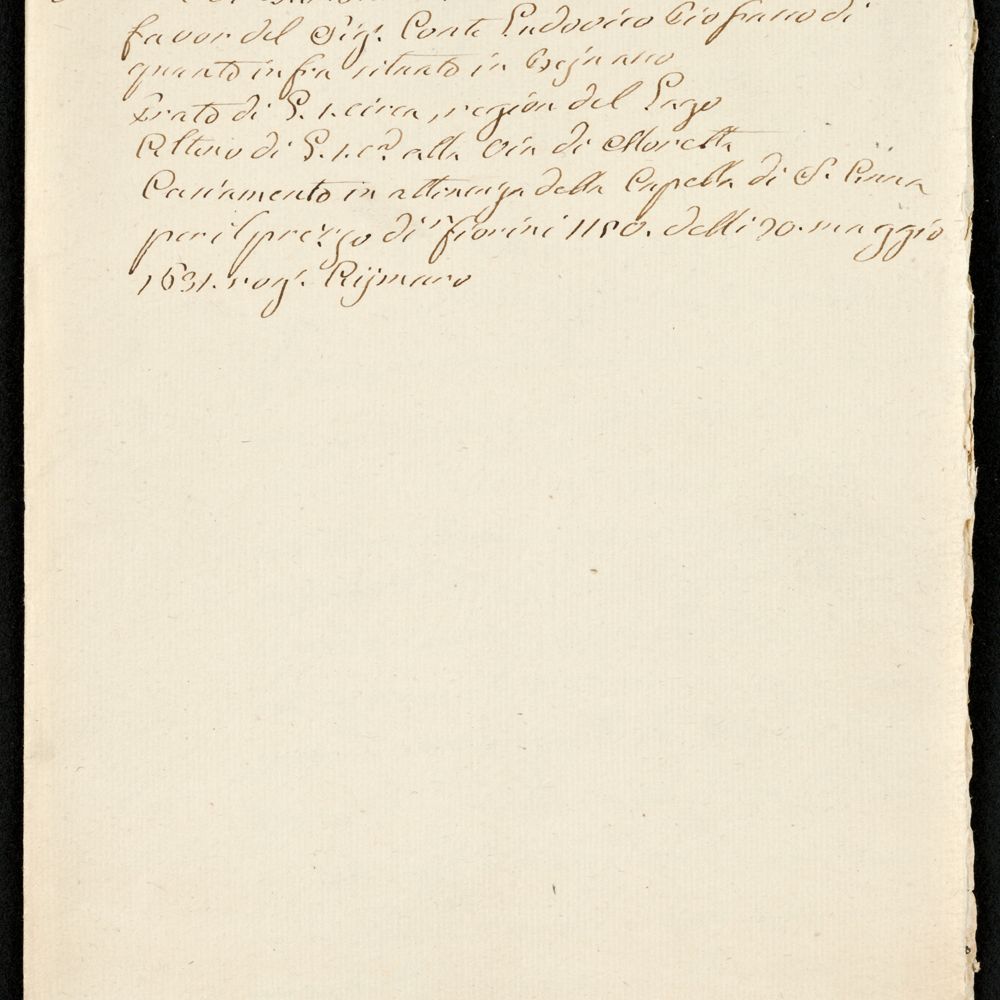 favor del Sig.r Conte Ludovico Gioffredo di
quanto infra situato in
Prato di G. 1. circa, region del
Altino di G. 1. c.a alla Via di Moretta
Casiamento in attinenza della Capella di S. Anna
per il prezzo di fiorini 1150. delli 20. maggio
1631. rog.